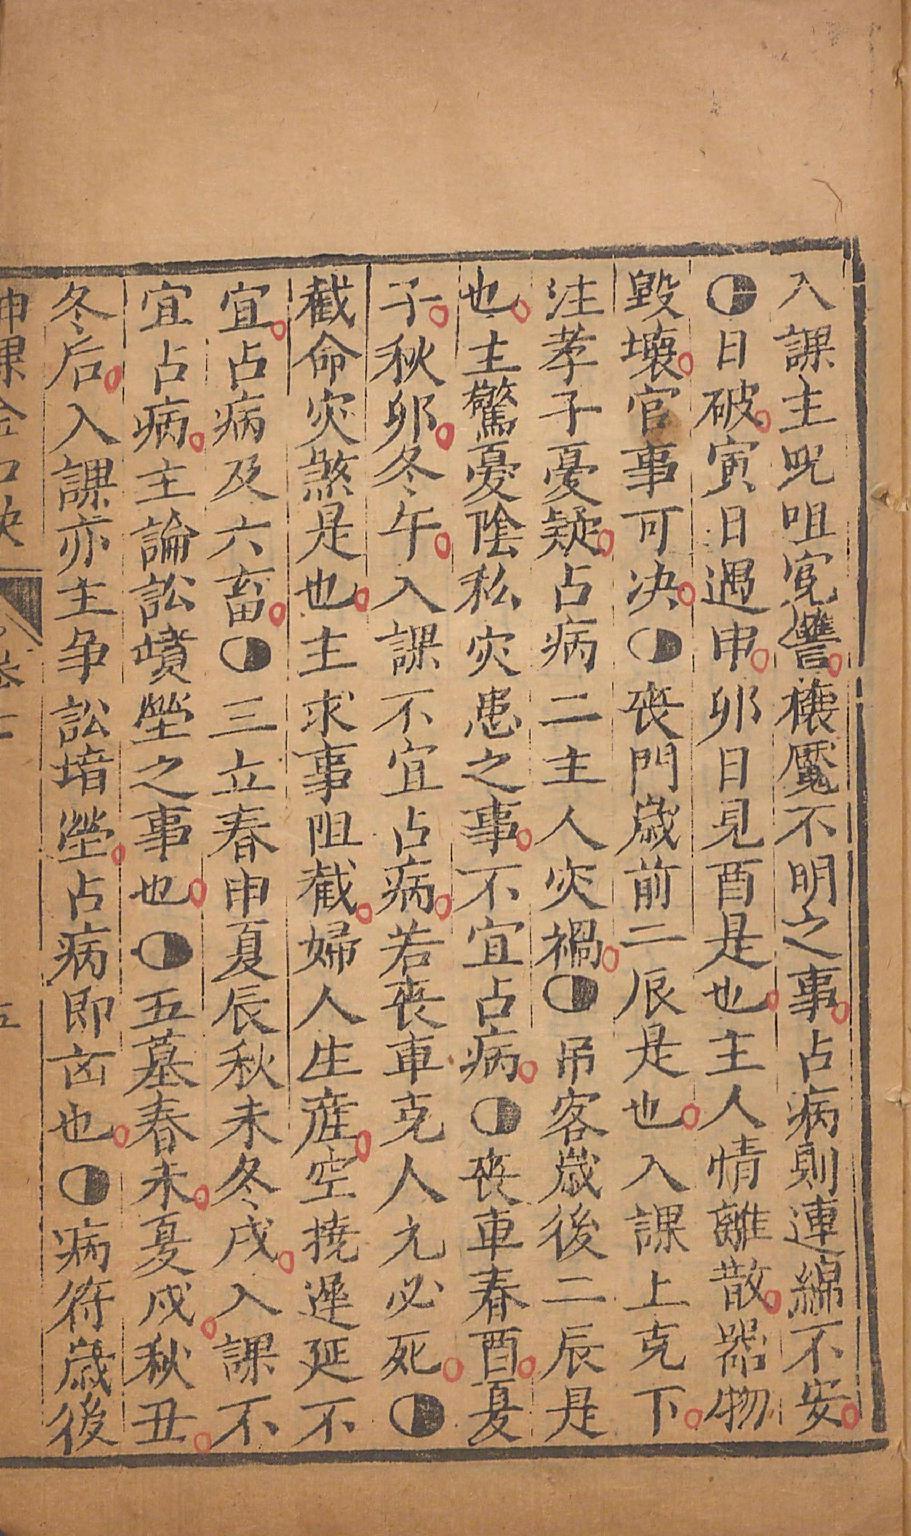 入課主呪咀寃讐禳魘不明之事占病則連綿不安
◐日破寅日遇申卯日見酉是也主人情離散器物
毀壞官事可决◐丧門歳前二辰是也入課上克下
注孝子憂疑占病二主人灾禍◐吊客歳後二辰是
也主驚憂陰私灾患之事不宜占病◐丧車春酉夏
子秋卯冬午入課不宜占病若丧車克人元必死◐
截命灾煞是也主求事阻截婦人生産空撓遲延不
宜占病及六畜◐三立春申夏辰秋未冬戌入課不
宜占病主論訟墳塋之事也◐五墓春未夏戌秋丑
冬后入課亦主争訟墳塋占病即凶也◐病符歳後
神課金口决 卷上 五